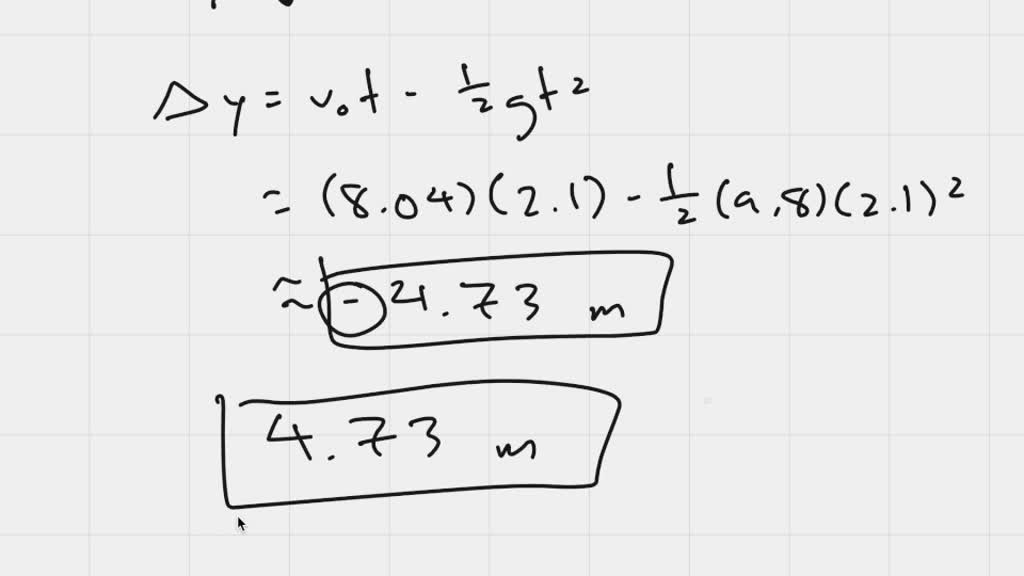 Δy = v₀t - ½gt²
= (8.04)(2.1) - ½(9.8)(2.1)²
≈ -4.73 m
4.73 m